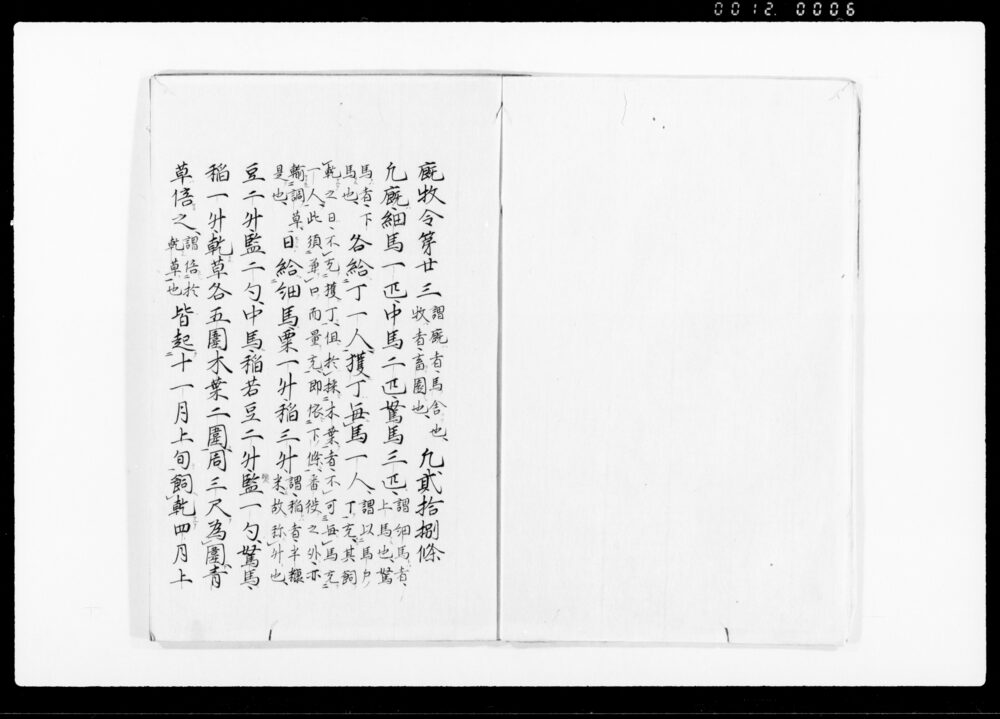 0012 0006
廐牧令第廿三謂廐者馬舎也、牧者畜園也、凢貳拾捌條
凢廐細馬一匹中馬二匹駑馬三匹、謂細馬者、上馬也、駑
馬者、下馬也、各給丁一人、獲丁毎馬一人、謂以馬戸丁充、其飼
乾之日、不充獲丁、但於採木葉者、不可毎馬充一人、此須兼口而量充、即依下條、番役之外、亦
輸調草、是也、日給細馬粟一升稲三升謂稲者半糠米、故称升也、
豆二升監二勺、中馬稲若豆二升監一勺、駑馬、
稲一升乾草各五圍木葉二圍周三尺為圍、青
草倍之、謂倍於乾草也皆起十一月上旬飼乾四月上